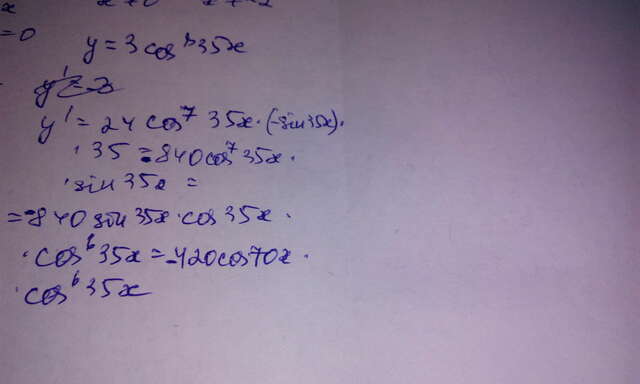 = 0
y = 3 cos⁸ 35x
y' = 24 cos⁷ 35x · (-sin 35x) ·
· 35 = -840 cos⁷ 35x ·
· sin 35x =
= -840 sin 35x · cos 35x ·
· cos⁶ 35x = -420 cos 70x ·
· cos⁶ 35x